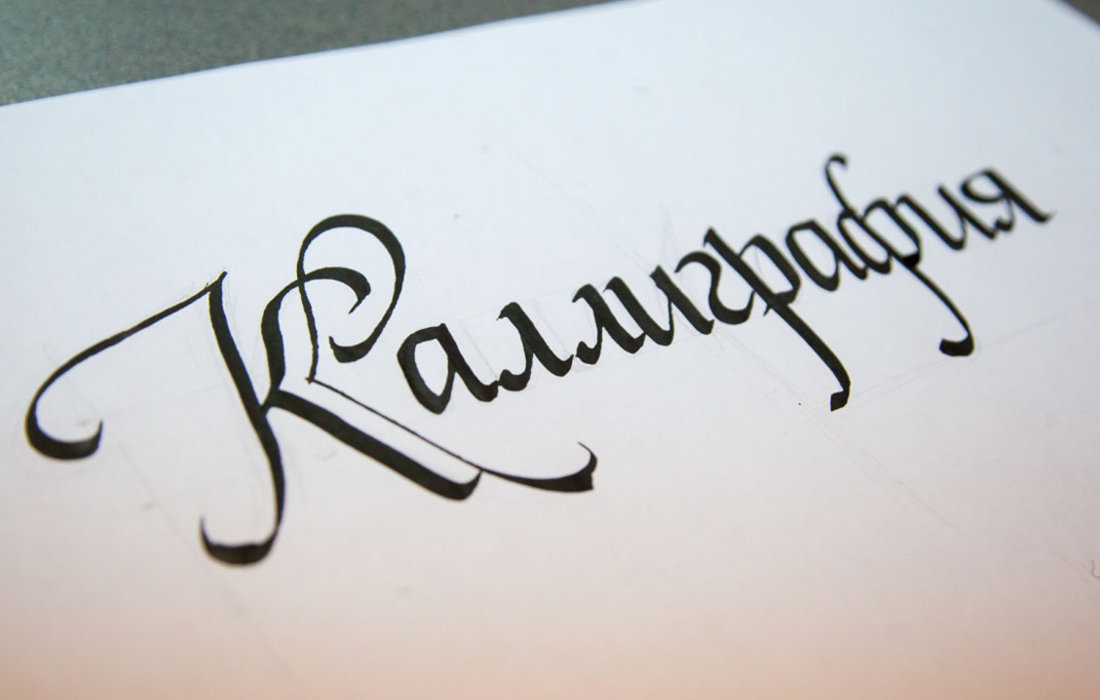 Каллиграфия